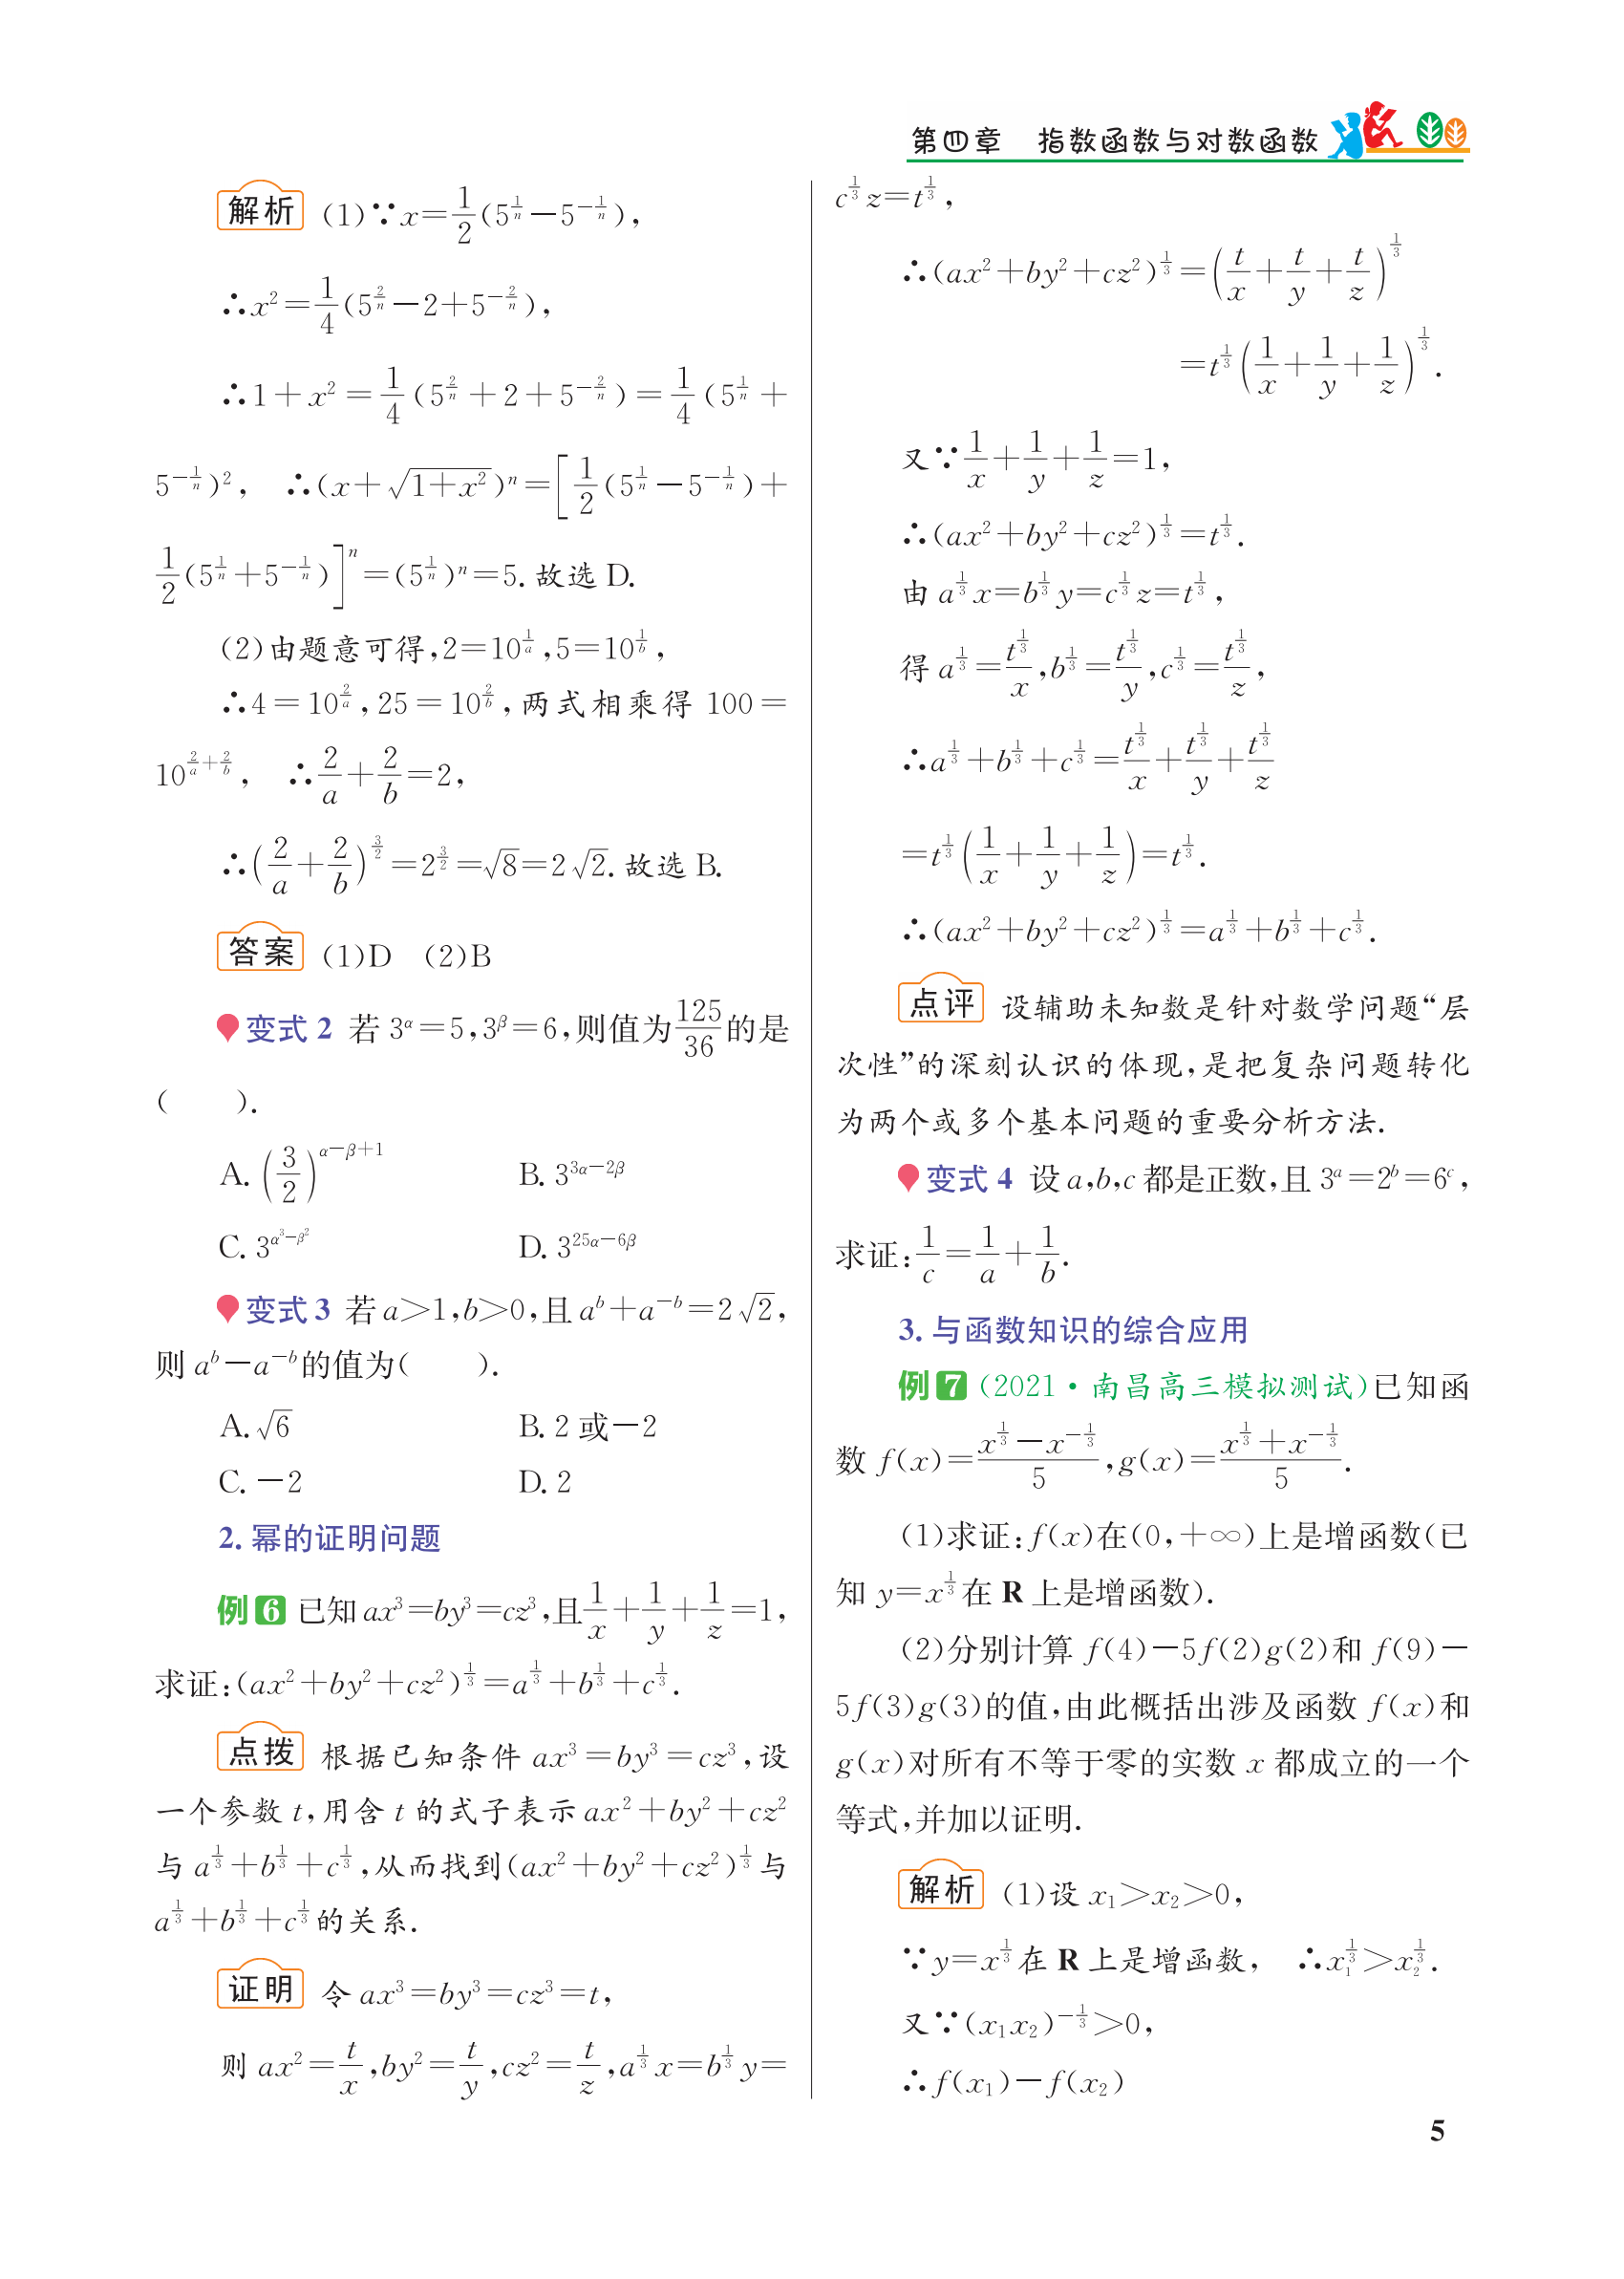 第四章　指数函数与对数函数
解析 (1)∵x=\frac{1}{2}(5^{\frac{1}{n}}-5^{-\frac{1}{n}}),
∴x^2=\frac{1}{4}(5^{\frac{2}{n}}-2+5^{-\frac{2}{n}}),
∴1+x^2=\frac{1}{4}(5^{\frac{2}{n}}+2+5^{-\frac{2}{n}})=\frac{1}{4}(5^{\frac{1}{n}}+
5^{-\frac{1}{n}})^2,　∴(x+\sqrt{1+x^2})^n=[\frac{1}{2}(5^{\frac{1}{n}}-5^{-\frac{1}{n}})+
\frac{1}{2}(5^{\frac{1}{n}}+5^{-\frac{1}{n}})]^n=(5^{\frac{1}{n}})^n=5.故选 D.
(2)由题意可得,2=10^{\frac{1}{a}},5=10^{\frac{1}{b}},
∴4=10^{\frac{2}{a}},25=10^{\frac{2}{b}},两式相乘得 100=
10^{\frac{2}{a}+\frac{2}{b}},　∴\frac{2}{a}+\frac{2}{b}=2,
∴(\frac{2}{a}+\frac{2}{b})^{\frac{3}{2}}=2^{\frac{3}{2}}=\sqrt{8}=2\sqrt{2}.故选 B.
答案 (1)D　(2)B
变式 2 若 3^α=5,3^β=6,则值为\frac{125}{36}的是
(　　).
A. (\frac{3}{2})^{α-β+1}　　B. 3^{3α-2β}
C. 3^{α^3-β^2}　　D. 3^{25α-6β}
变式 3 若 a>1,b>0,且 a^b+a^{-b}=2\sqrt{2},
则 a^b-a^{-b}的值为(　　).
A. \sqrt{6}　　B. 2 或-2
C. -2　　D. 2
2. 幂的证明问题
例 6 已知 ax^3=by^3=cz^3,且\frac{1}{x}+\frac{1}{y}+\frac{1}{z}=1,
求证:(ax^2+by^2+cz^2)^{\frac{1}{3}}=a^{\frac{1}{3}}+b^{\frac{1}{3}}+c^{\frac{1}{3}}.
点拨 根据已知条件 ax^3=by^3=cz^3,设
一个参数 t,用含 t 的式子表示 ax^2+by^2+cz^2
与 a^{\frac{1}{3}}+b^{\frac{1}{3}}+c^{\frac{1}{3}},从而找到(ax^2+by^2+cz^2)^{\frac{1}{3}}与
a^{\frac{1}{3}}+b^{\frac{1}{3}}+c^{\frac{1}{3}}的关系.
证明 令 ax^3=by^3=cz^3=t,
则 ax^2=\frac{t}{x},by^2=\frac{t}{y},cz^2=\frac{t}{z},a^{\frac{1}{3}}x=b^{\frac{1}{3}}y=
c^{\frac{1}{3}}z=t^{\frac{1}{3}},
∴(ax^2+by^2+cz^2)^{\frac{1}{3}}=(\frac{t}{x}+\frac{t}{y}+\frac{t}{z})^{\frac{1}{3}}
=t^{\frac{1}{3}}(\frac{1}{x}+\frac{1}{y}+\frac{1}{z})^{\frac{1}{3}}.
又∵\frac{1}{x}+\frac{1}{y}+\frac{1}{z}=1,
∴(ax^2+by^2+cz^2)^{\frac{1}{3}}=t^{\frac{1}{3}}.
由 a^{\frac{1}{3}}x=b^{\frac{1}{3}}y=c^{\frac{1}{3}}z=t^{\frac{1}{3}},
得 a^{\frac{1}{3}}=\frac{t^{\frac{1}{3}}}{x},b^{\frac{1}{3}}=\frac{t^{\frac{1}{3}}}{y},c^{\frac{1}{3}}=\frac{t^{\frac{1}{3}}}{z},
∴a^{\frac{1}{3}}+b^{\frac{1}{3}}+c^{\frac{1}{3}}=\frac{t^{\frac{1}{3}}}{x}+\frac{t^{\frac{1}{3}}}{y}+\frac{t^{\frac{1}{3}}}{z}
=t^{\frac{1}{3}}(\frac{1}{x}+\frac{1}{y}+\frac{1}{z})=t^{\frac{1}{3}}.
∴(ax^2+by^2+cz^2)^{\frac{1}{3}}=a^{\frac{1}{3}}+b^{\frac{1}{3}}+c^{\frac{1}{3}}.
点评 设辅助未知数是针对数学问题“层
次性”的深刻认识的体现,是把复杂问题转化
为两个或多个基本问题的重要分析方法.
变式 4 设 a,b,c 都是正数,且 3^a=2^b=6^c,
求证:\frac{1}{c}=\frac{1}{a}+\frac{1}{b}.
3. 与函数知识的综合应用
例 7 (2021·南昌高三模拟测试)已知函
数 f(x)=\frac{x^{\frac{1}{3}}-x^{-\frac{1}{3}}}{5},g(x)=\frac{x^{\frac{1}{3}}+x^{-\frac{1}{3}}}{5}.
(1)求证:f(x)在(0,+∞)上是增函数(已
知 y=x^{\frac{1}{3}}在 R 上是增函数).
(2)分别计算 f(4)-5f(2)g(2)和 f(9)-
5f(3)g(3)的值,由此概括出涉及函数 f(x)和
g(x)对所有不等于零的实数 x 都成立的一个
等式,并加以证明.
解析 (1)设 x_1>x_2>0,
∵y=x^{\frac{1}{3}}在 R 上是增函数,　∴x_1^{\frac{1}{3}}>x_2^{\frac{1}{3}}.
又∵(x_1x_2)^{-\frac{1}{3}}>0,
∴f(x_1)-f(x_2)
5